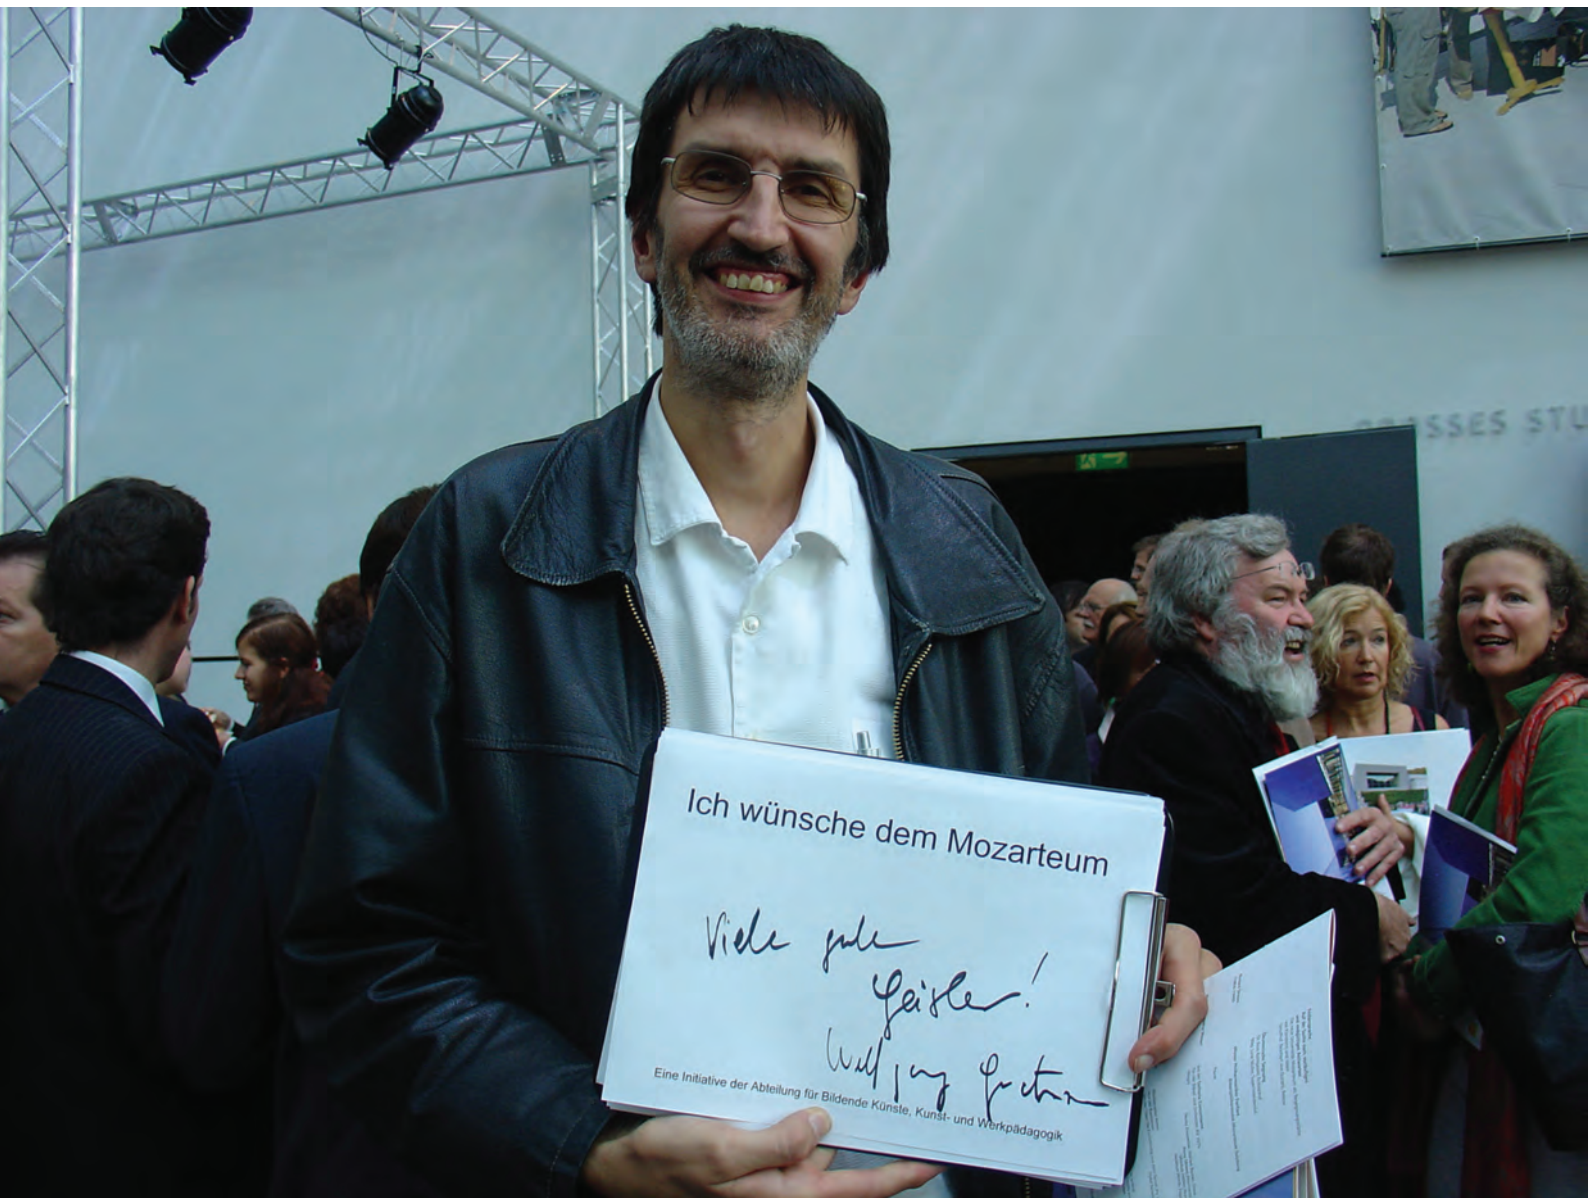 SSES STU
Ich wünsche dem Mozarteum
Viele gute
Geister!
Wolfgang
Eine Initiative der Abteilung für Bildende Künste, Kunst- und Werkpädagogik